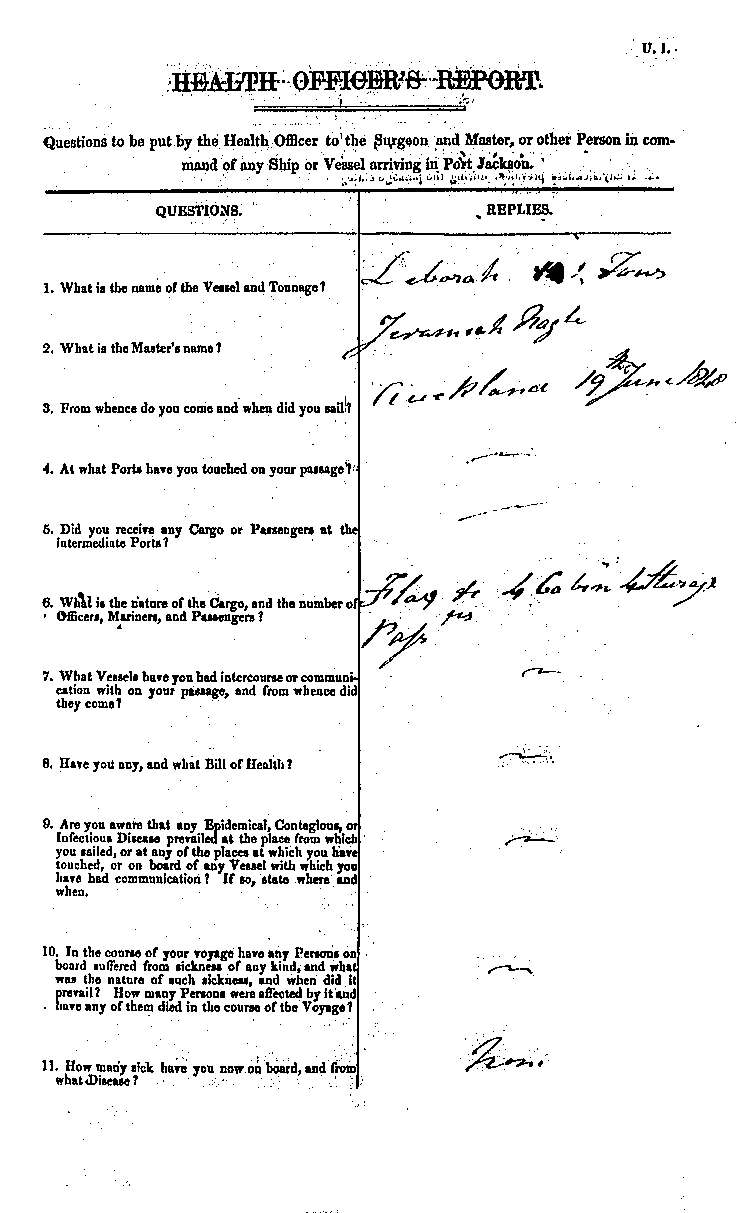 U. 1.
HEALTH OFFICER'S REPORT.
Questions to be put by the Health Officer to the Surgeon and Master, or other Person in com-
mand of any Ship or Vessel arriving in Port Jackson.
QUESTIONS.
REPLIES.
1. What is the name of the Vessel and Tonnage?
Deborah Tons
2. What is the Master's name?
Jeramiah Nagle
3. From whence do you come and when did you sail?
Auckland 19th June 1840
4. At what Ports have you touched on your passage?
—
5. Did you receive any Cargo or Passengers at the
intermediate Ports?
—
6. What is the nature of the Cargo, and the number of
Officers, Mariners, and Passengers?
Flax &c 4 Cabin 4 Sturage
Passgrs
7. What Vessels have you had intercourse or communi-
cation with on your passage, and from whence did
they come?
~
8. Have you any, and what Bill of Health?
~
9. Are you aware that any Epidemical, Contagious, or
Infectious Disease prevailed at the place from which
you sailed, or at any of the places at which you have
touched, or on board of any Vessel with which you
have had communication? If so, state where and
when.
~
10. In the course of your voyage have any Persons on
board suffered from sickness of any kind, and what
was the nature of such sickness, and when did it
prevail? How many Persons were affected by it and
have any of them died in the course of the Voyage?
~
11. How many sick have you now on board, and from
what Disease?
None